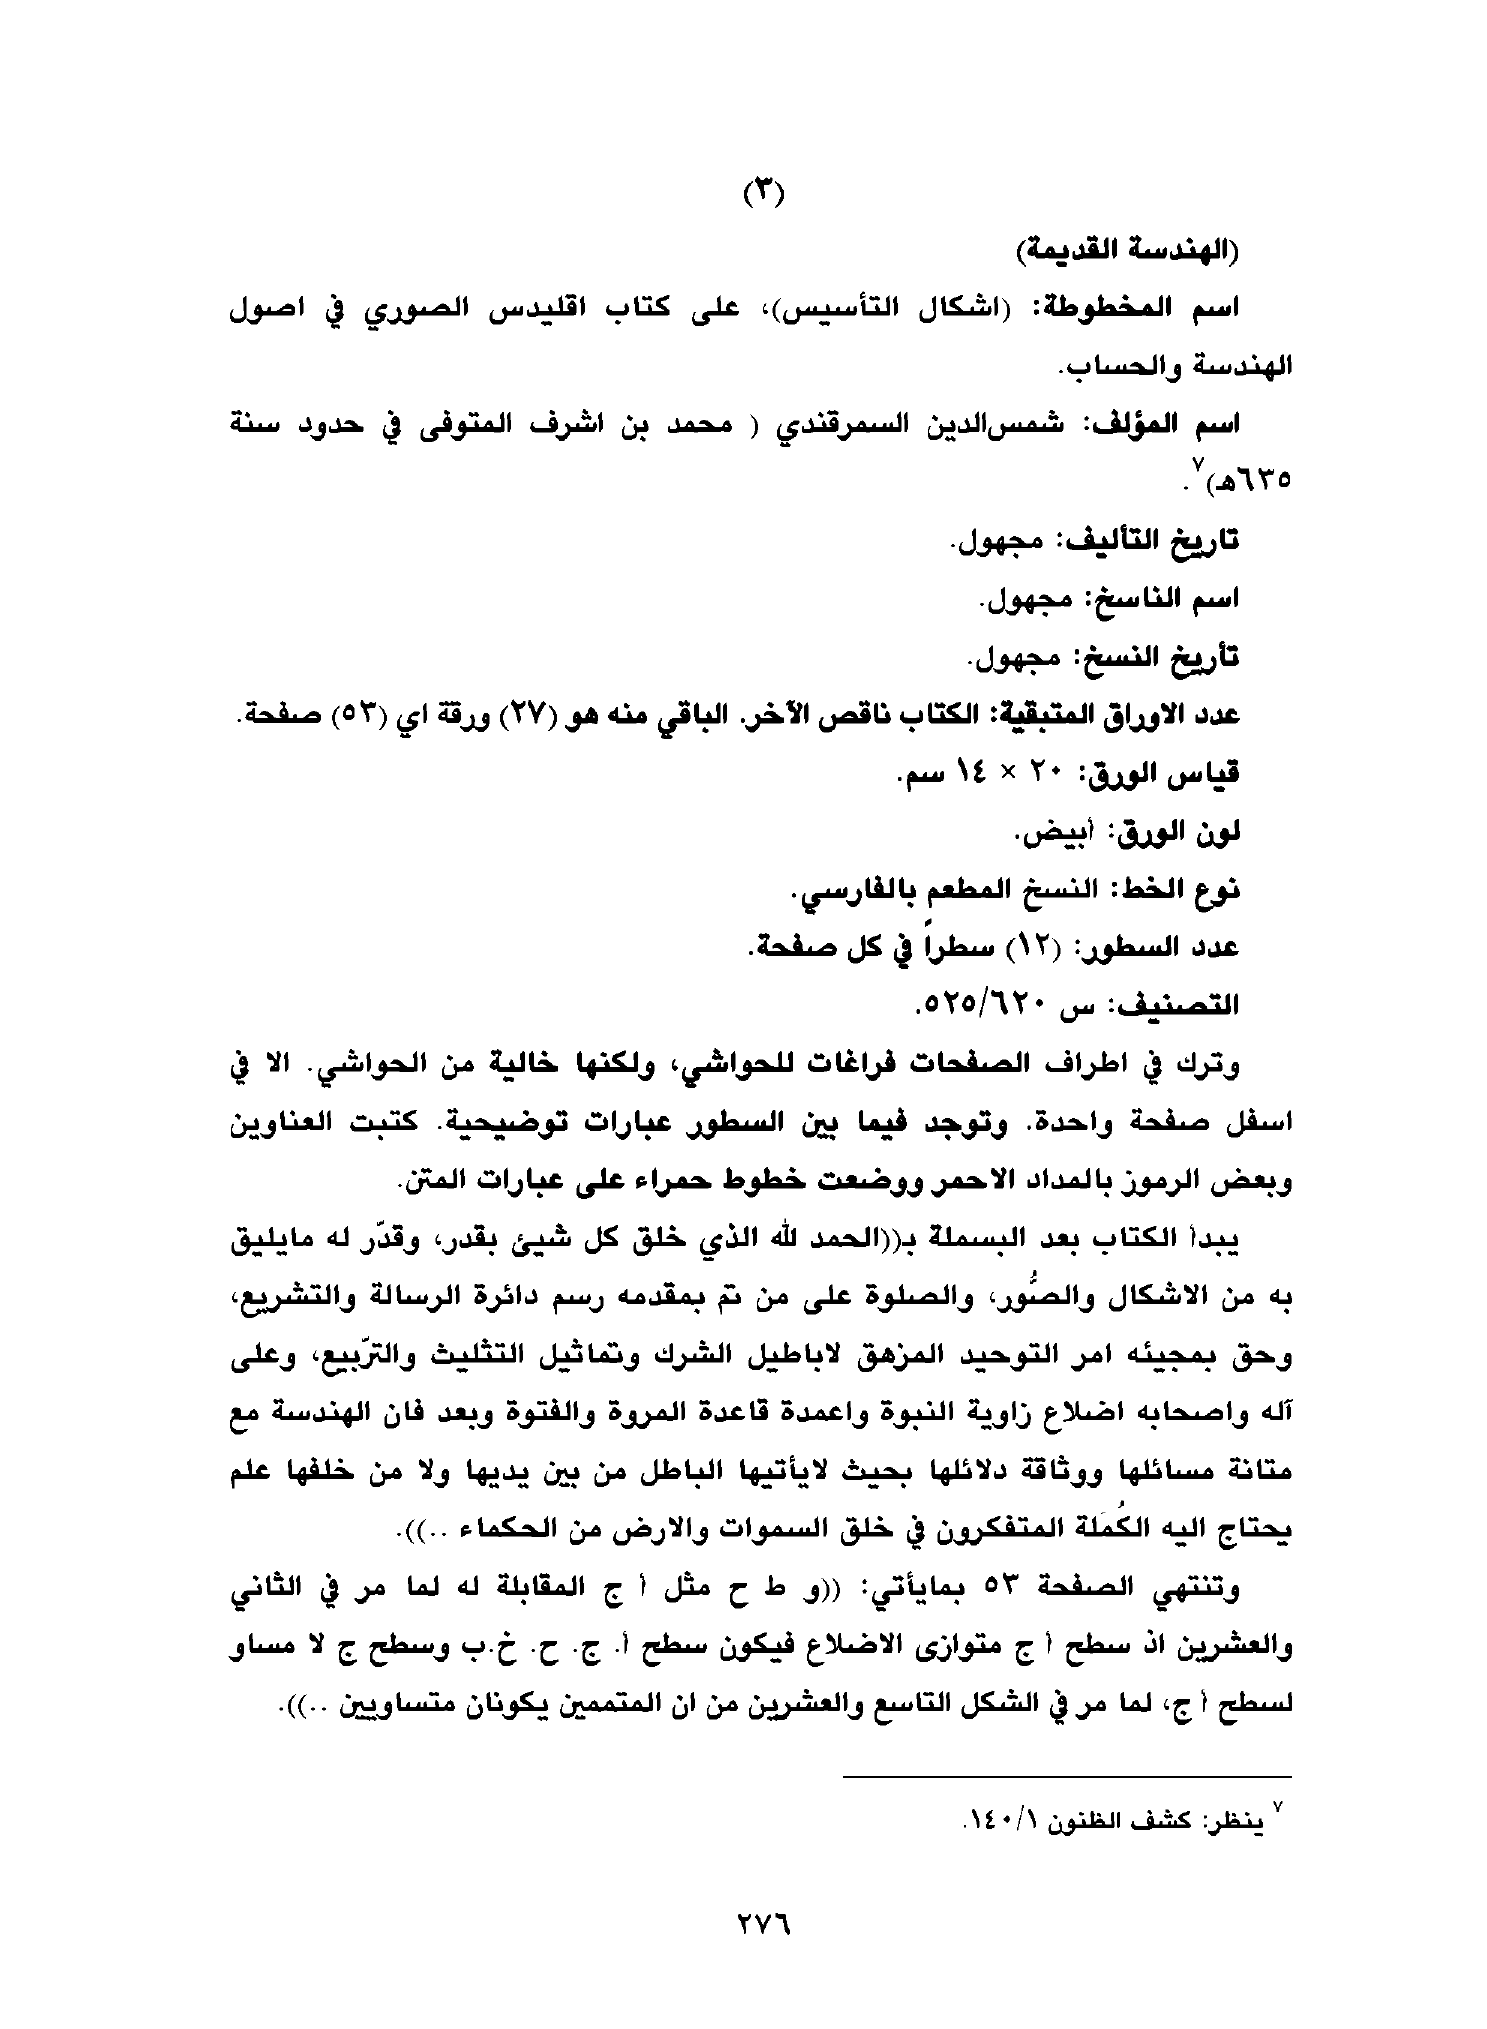 (٣)
(الهندسة القديمة)
اسم المخطوطة: (اشكال التأسيس)، على كتاب اقليدس الصوري في اصول
الهندسة والحساب.
اسم المؤلف: شمس‌الدين السمرقندي ( محمد بن اشرف المتوفى في حدود سنة
٦٣٥هـ)٧.
تاريخ التأليف: مجهول.
اسم الناسخ: مجهول.
تأريخ النسخ: مجهول.
عدد الاوراق المتبقية: الكتاب ناقص الآخر. الباقي منه هو (٢٧) ورقة اي (٥٣) صفحة.
قياس الورق: ٢٠ × ١٤ سم.
لون الورق: أبيض.
نوع الخط: النسخ المطعم بالفارسي.
عدد السطور: (١٢) سطراً في كل صفحة.
التصنيف: س ٥٢٥/٦٢٠.
وترك في اطراف الصفحات فراغات للحواشي، ولكنها خالية من الحواشي. الا في
اسفل صفحة واحدة. وتوجد فيما بين السطور عبارات توضيحية. كتبت العناوين
وبعض الرموز بالمداد الاحمر ووضعت خطوط حمراء على عبارات المتن.
يبدأ الكتاب بعد البسملة بـ((الحمد لله الذي خلق كل شيئ بقدر، وقدّر له مايليق
به من الاشكال والصُّور، والصلوة على من تم بمقدمه رسم دائرة الرسالة والتشريع،
وحق بمجيئه امر التوحيد المزهق لاباطيل الشرك وتماثيل التثليث والتّربيع، وعلى
آله واصحابه اضلاع زاوية النبوة واعمدة قاعدة المروة والفتوة وبعد فان الهندسة مع
متانة مسائلها ووثاقة دلائلها بحيث لايأتيها الباطل من بين يديها ولا من خلفها علم
يحتاج اليه الكُمَلة المتفكرون في خلق السموات والارض من الحكماء ..)).
وتنتهي الصفحة ٥٣ بمايأتي: ((و ط ح مثل أ ج المقابلة له لما مر في الثاني
والعشرين اذ سطح أ ج متوازى الاضلاع فيكون سطح أ. ج. ح. خ.ب وسطح ج لا مساو
لسطح أ ج، لما مر في الشكل التاسع والعشرين من ان المتممين يكونان متساويين ..)).
٧ ينظر: كشف الظنون ١٤٠/١.
٢٧٦